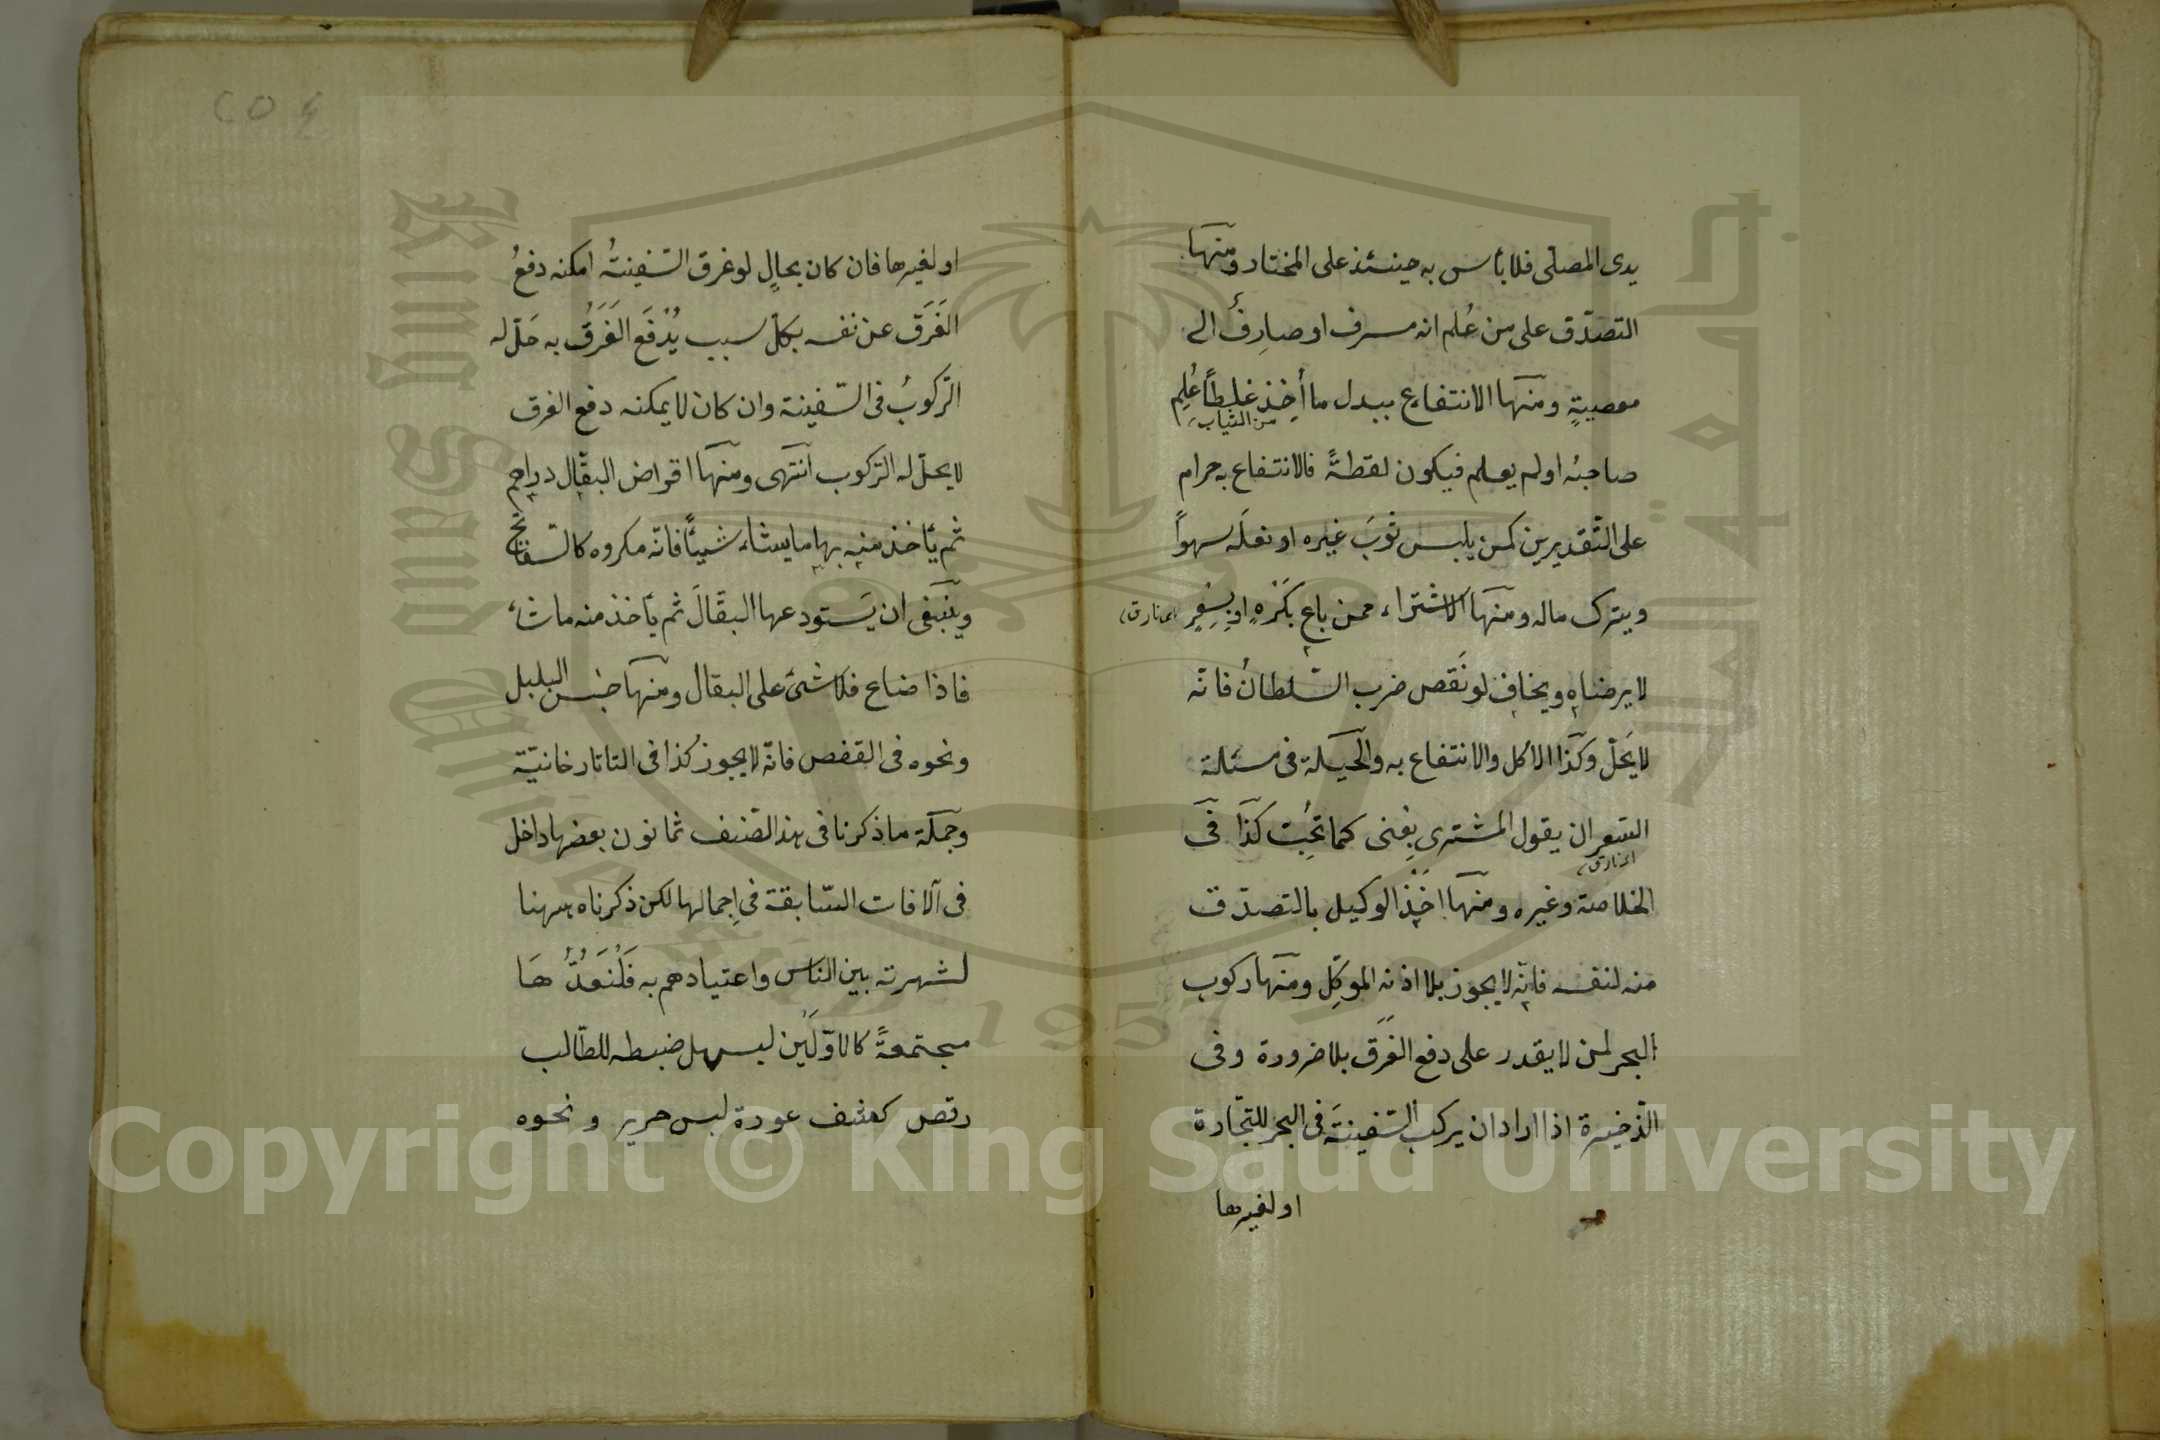 يدى المصلّى فلا بأس به حينئذ على المختار ومنها
التصدّق على من عُلم انه مسرف او صارِفٌ الى
معصيةٍ ومنها الانتفاع ببدل ما أُخِذ غلطًا عُلِم
من الثياب
صاحبُه او لم يعلم فيكون لقطةً فالانتفاع به حرام
على التّقديرين كمن يلبس ثوبَ غيره او نعلَه سهواً
ويترك ماله ومنها الاشتراء ممن باع بكَرْهٍ او بسِعْرٍ
لا يرضاه ويخاف لو نَقص ضرب السّلطانُ فانّه
لا يَحَلّ وكذا الاكل والانتفاع به والحيلة فى مسئلة
السّعر ان يقول المشترى بِعْنى كما تحُِبّ كذا فى
الخلاصة وغيره ومنها اخْذ الوكيل بالتصدّق
منه لنفسه فانّه لا يجوز بلا اذنه الموكّل ومنها ركوب
البحر لمن لا يقدر على دفع الغَرَق بلا ضرورة وفى
الذّخيرة اذا اراد ان يركب السّفينَة فى البحر للتّجارة
او لغيرها
٢٥٤
او لغيرها فان كان بحالٍ لو غرق السّفينتُه امكنه دفعُ
الغَرَق عن نفسه بكلّ سبب يُدْفَع الغَرَقُ به حَلّ له
الرّكوبُ فى السّفينة وان كان لا يمكنه دفع الغرق
لا يحلّ له الرّكوب انتهى ومنها اقراض البقّال دراهم
ثم يأخذ منه بها ما يشاء شيئًا فانّه مكروه كالسّفاتج
وينبغى ان يَستودعها البقّالَ ثم يأخذ منه ما شاء
فاذا ضاع فلا شئ على البقال ومنها حبس البلبل
ونحوه فى القفص فانّه لا يجوز كذا فى التاتارخانيّة
وجملة ما ذكرنا فى هذا الصّنف ثمانون بعضها داخل
فى الآفات السّابقة فى إجمالها لكن ذكرناه ههنا
لشهرته بين الناس واعتيادهم به فَلْنَعُدُّ هَا
مجتمعةً كالاوّلَيْن ليسهل ضبطه للطّالب
رقص كشف عورة لبس حرير ونحوه
Copyright © King Saud University
King Saud University
1957